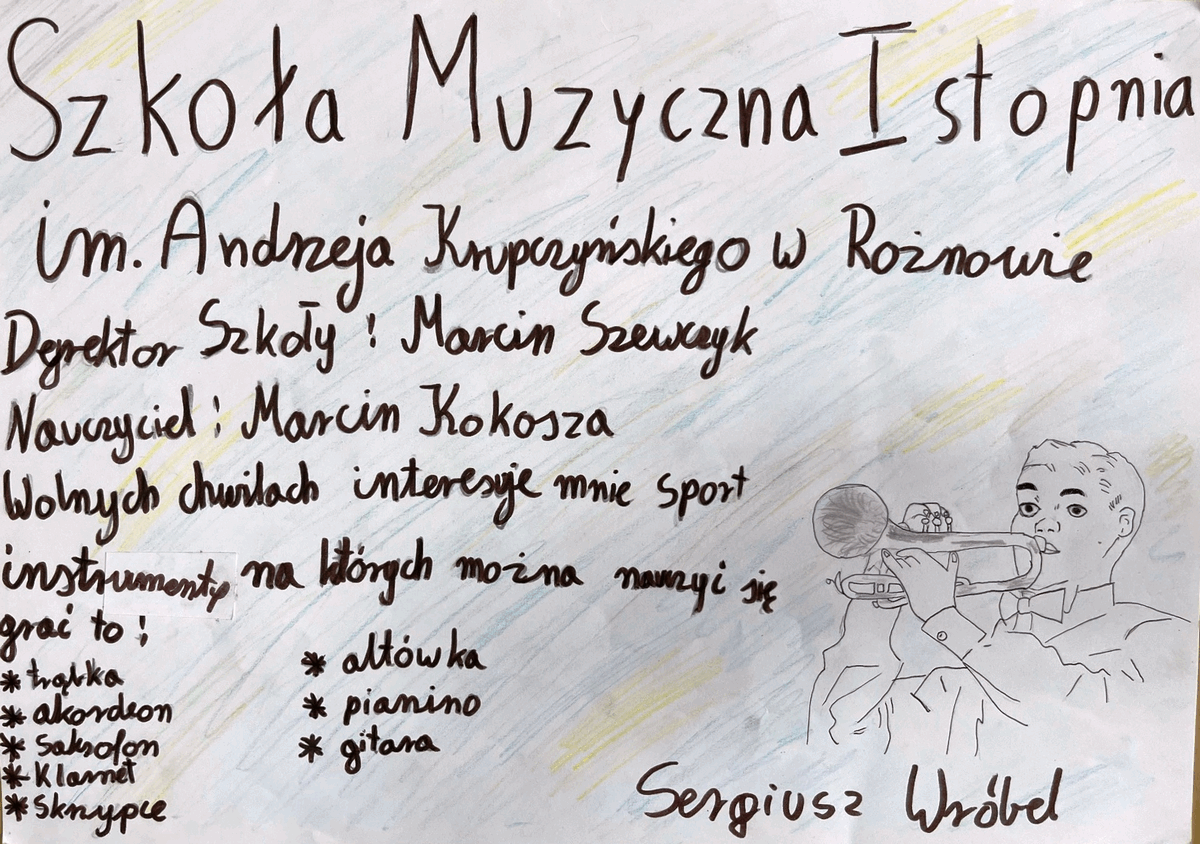 Szkoła Muzyczna I stopnia
im. Andrzeja Krupczyńskiego w Rożnowie
Dyrektor Szkoły: Marcin Szewczyk
Nauczyciel: Marcin Kokosza
Wolnych chwilach interesuje mnie sport
instrumenty na których można nauczyć się
grać to:
* trąbka
* akordeon
* saksofon
* klarnet
* Skrzypce
* altówka
* pianino
* gitara
Sergiusz Wróbel